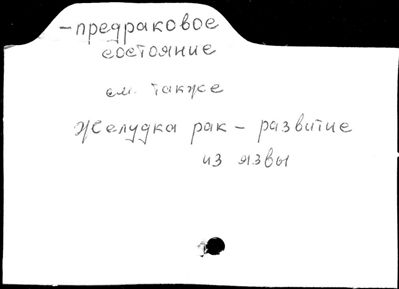 -предраковое
состояние
см. также
Желудка рак - развитие
из язвы